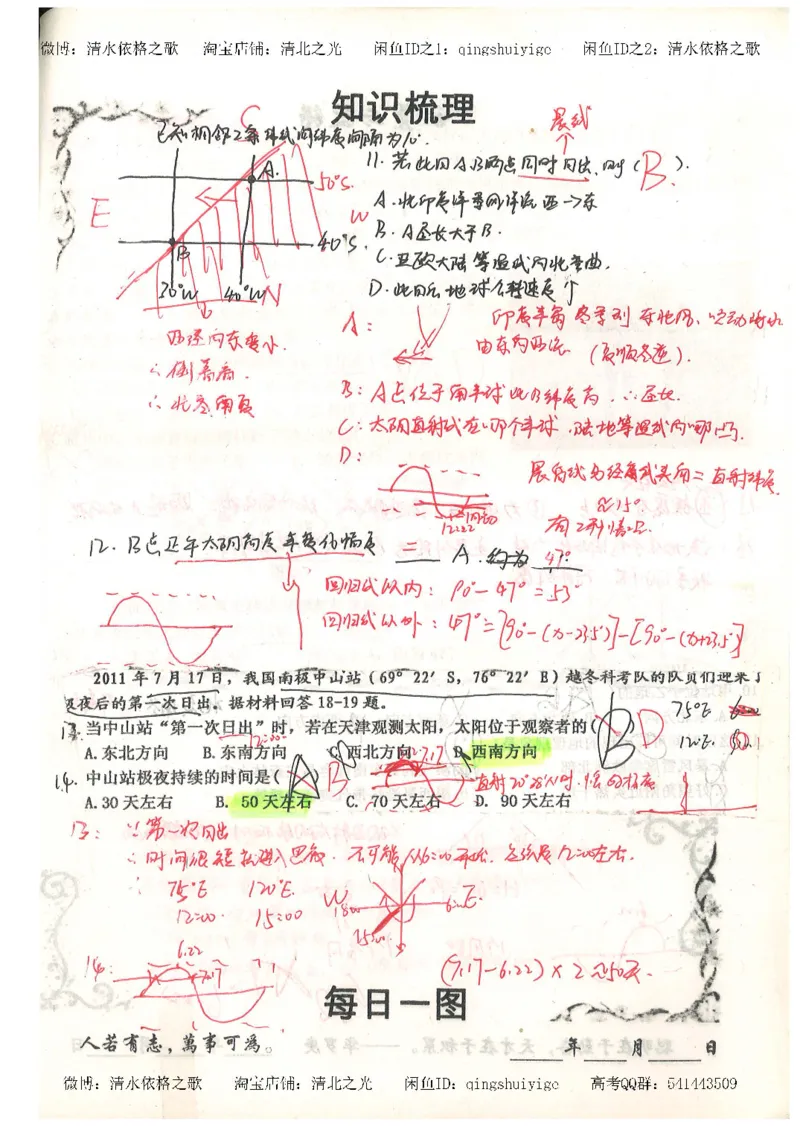 微博：清水依格之歌 淘宝店铺：清北之光 闲鱼ID之1：qingshuiyige 闲鱼ID之2：清水依格之歌
知识梳理
已知相邻2条纬线间纬度间隔为10°.
晨线
11. 若此日A、B两点同时日出，则（B）.
A.
50°S.
E
W
A. 北印度洋季风洋流西→东
B. A昼长大于B.
40°S.
B
C. 亚欧大陆等温线向北弯曲.
30°W 40°W N
D. 此日后地球公转速度个
A:
由东向西流 (夏顺冬逆).
西经向东变小.
∴倒着看.
B: A点位于南半球此时纬度高，∴昼长.
C: 太阳直射点在哪个半球，陆地等温线向哪凸.
D:
12. B点正午太阳高度年变化幅度 = A. 约为 47°
回归线以内: 90°-47°=53°
回归线以外: 47°=[90°-(x-23.5°)]-[90°-(x+23.5°)]
2011年7月17日，我国南极中山站（69°22′S，76°22′E）越冬科考队的队员们迎来了
极夜后的第一次日出。据材料回答18-19题。
13. 当中山站“第一次日出”时，若在天津观测太阳，太阳位于观察者的（B D
75°E
120°E
A.东北方向 B.东南方向 C.西北方向 D.西南方向
7.17
14. 中山站极夜持续的时间是（ B
A.30天左右 B. 50天左右 C. 70天左右 D. 90天左右
13: ∵第一次日出
∴时间很短就进入黑夜. 不可能从6:00开始，应该是12:00左右.
∴ 75°E 120°E.
12:00. 15:00
W
18:00
6:00 E.
15:00
S
14:
6.22
7.17
(7.17-6.22)×2≈50天.
每日一图
人若有志，萬事可為。
年 月 日
微博：清水依格之歌 淘宝店铺：清北之光 闲鱼ID：qingshuiyige 高考QQ群：541443509